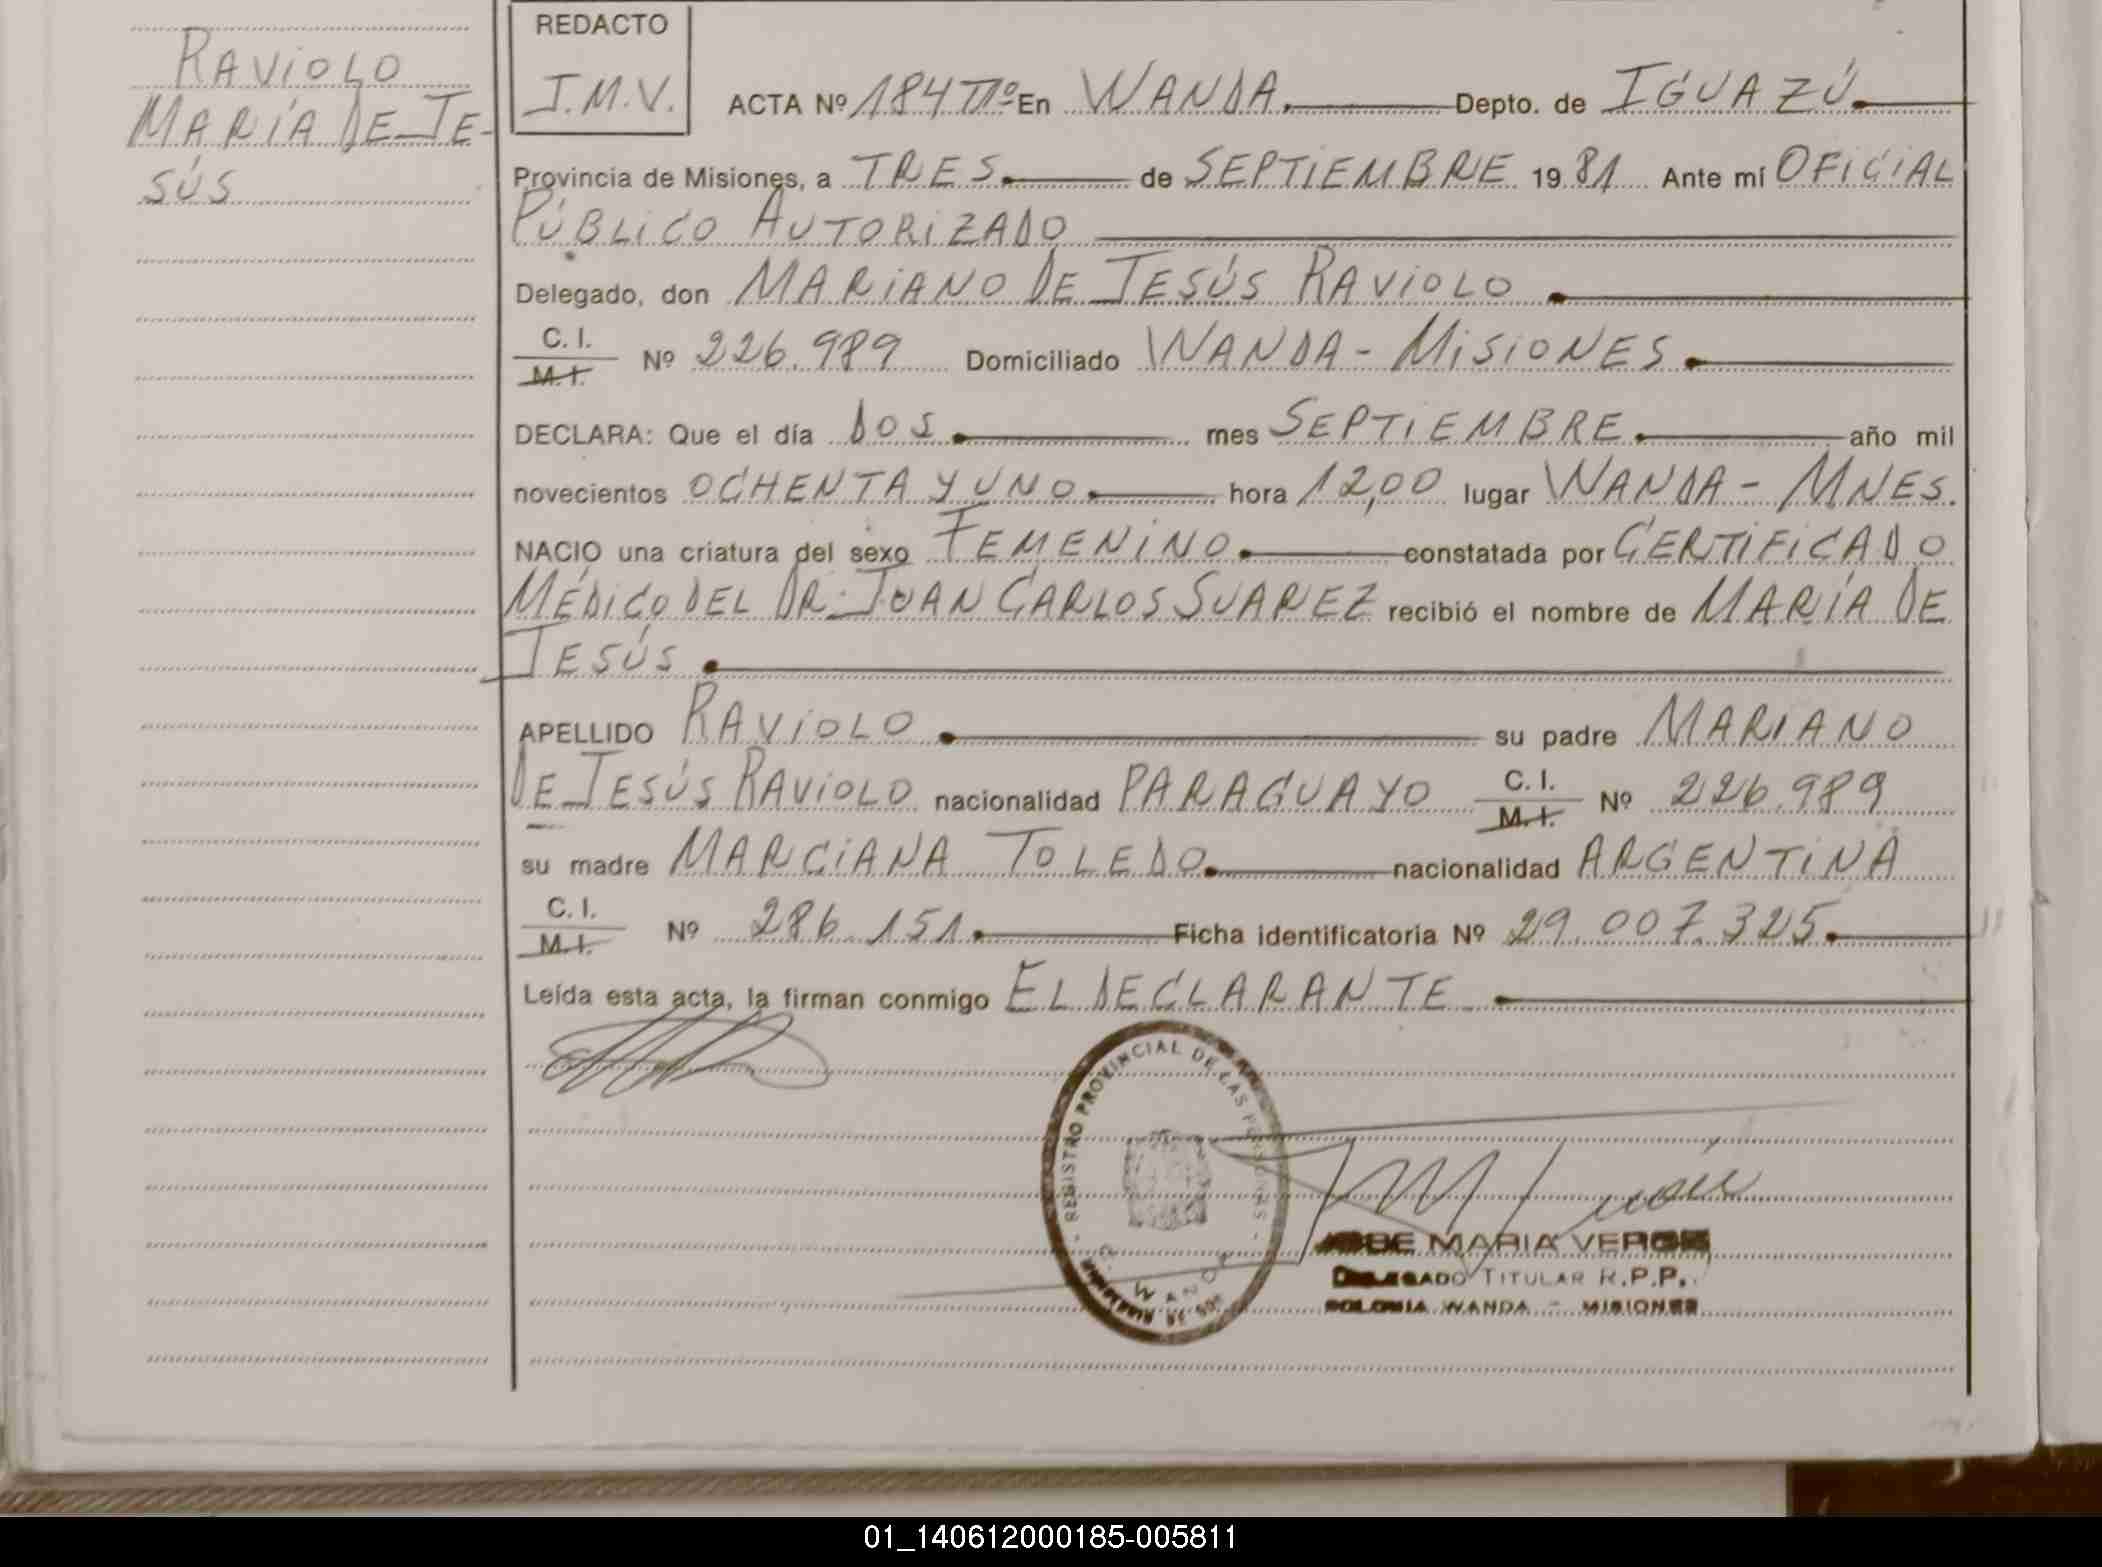 RAVIOLO
MARÍA DE JE-
SÚS
REDACTO
J.M.V.
ACTA Nº 184 Tº En WANDA. Depto. de IGUAZÚ
Provincia de Misiones, a TRES de SEPTIEMBRE 1981 Ante mí OFICIAL
PÚBLICO AUTORIZADO
Delegado, don MARIANO DE JESÚS RAVIOLO
C. I.
M. I.
Nº 226.989 Domiciliado WANDA - MISIONES
DECLARA: Que el día DOS mes SEPTIEMBRE año mil
novecientos OCHENTA Y UNO hora 12,00 lugar WANDA - MNES.
NACIO una criatura del sexo FEMENINO constatada por CERTIFICADO
MÉDICO DEL DR. JUAN CARLOS SUAREZ recibió el nombre de MARÍA DE
JESÚS
APELLIDO RAVIOLO su padre MARIANO
DE JESÚS RAVIOLO nacionalidad PARAGUAYO C. I.
M. I.
Nº 226.989
su madre MARCIANA TOLEDO nacionalidad ARGENTINA
C. I.
M. I.
Nº 286.151 Ficha identificatoria Nº 29.007.325
Leída esta acta, la firman conmigo EL DECLARANTE
REGISTRO PROVINCIAL DE LAS PERSONAS
WANDA
JOSE MARIA VERON
DELEGADO TITULAR R.P.P.
COLONIA WANDA - MISIONES
01_140612000185-005811